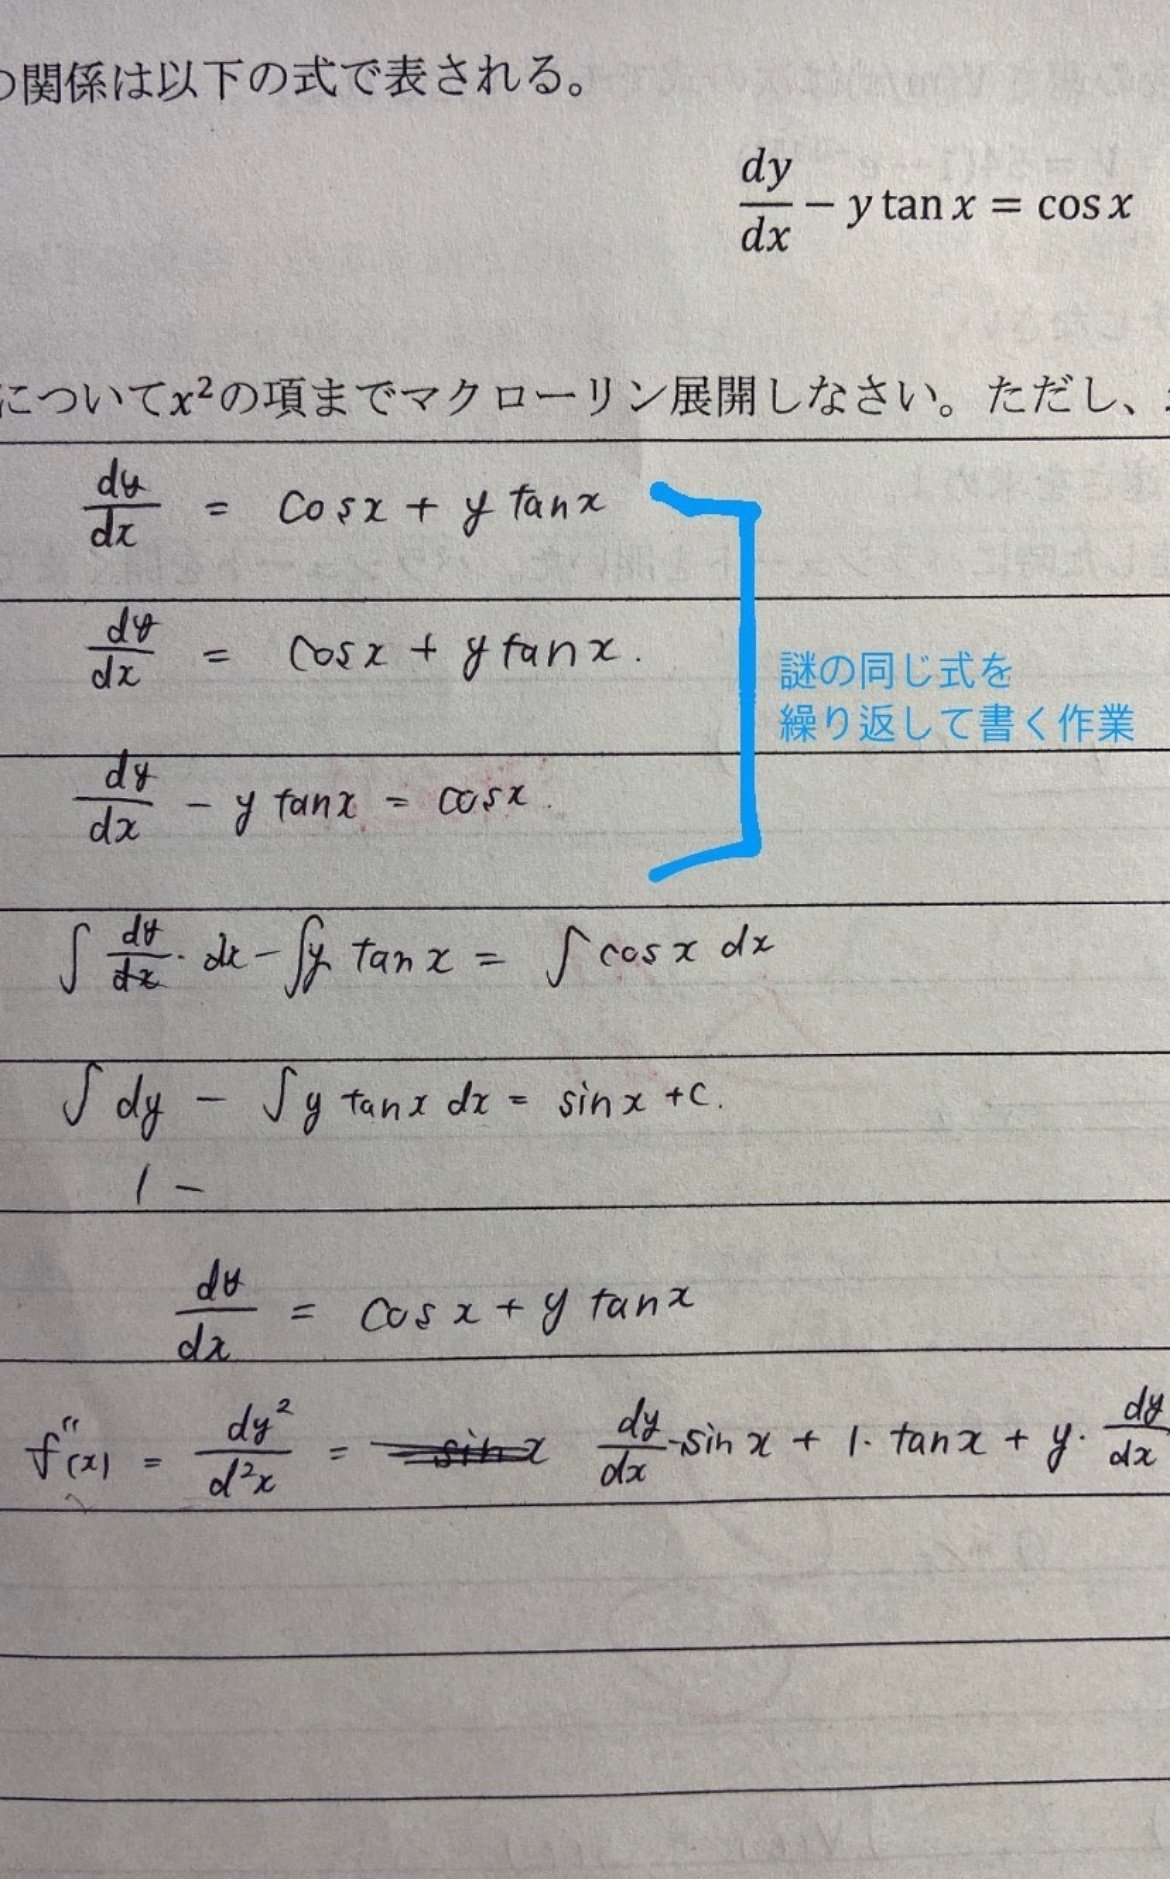 の関係は以下の式で表される。
dy/dx − y tan x = cos x
についてx²の項までマクローリン展開しなさい。ただし、
dy/dx = cosx + y tanx
dy/dx = cosx + y tanx.
謎の同じ式を
繰り返して書く作業
dy/dx − y tanx = cosx.
∫ dy/dx · dx − ∫y tanx = ∫ cosx dx
∫ dy − ∫ y tanx dx = sinx + C.
1 −
dy/dx = cosx + y tanx
f''(x) = dy²/d²x = dy/dx -sinx + 1· tanx + y· dy/dx